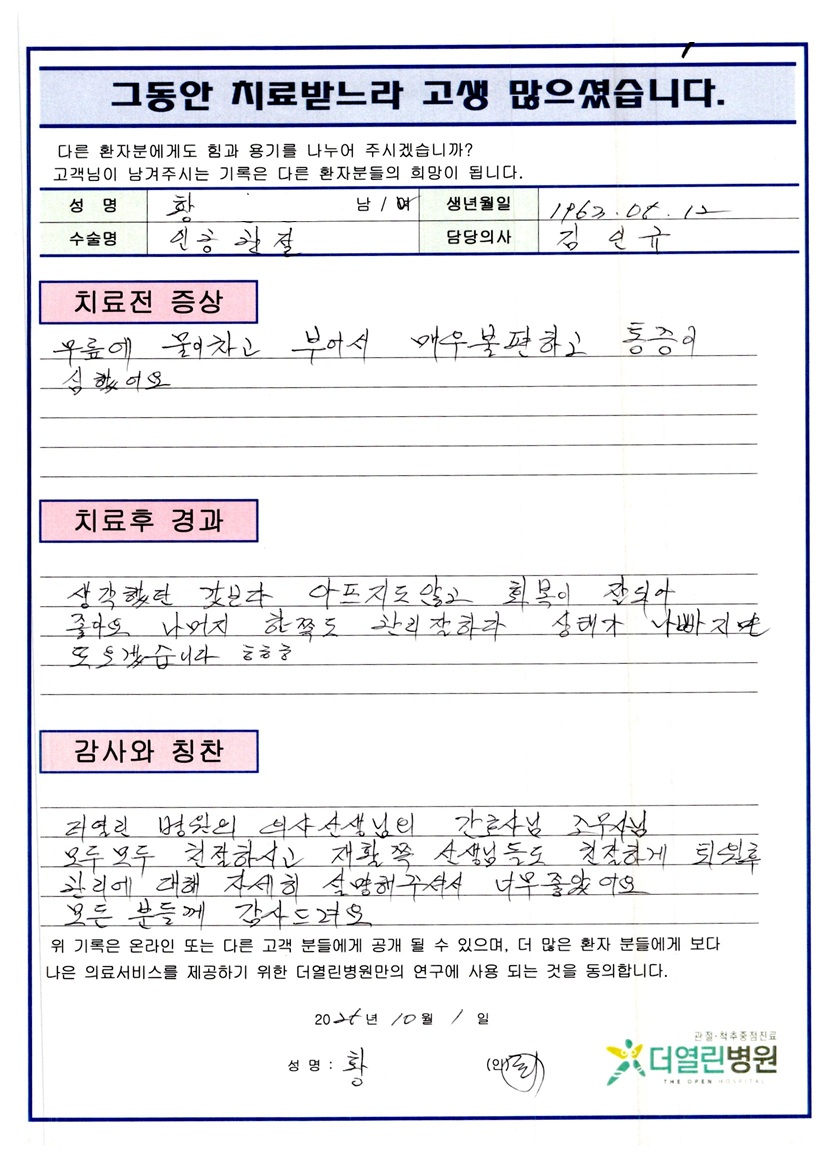 그동안 치료받느라 고생 많으셨습니다.
다른 환자분에게도 힘과 용기를 나누어 주시겠습니까?
고객님이 남겨주시는 기록은 다른 환자분들의 희망이 됩니다.
성 명 황 남 / 여 생년월일
수술명 인공관절 담당의사 김인규
치료전 증상
무릎에 물이차고 부어서 매우불편하고 통증이
심했어요
치료후 경과
생각했던 것보다 아프지도않고 회복이 잘되어
좋아요 나머지 한쪽도 관리잘하다 상태가 나빠지면
또오겠습니다 ㅎㅎㅎ
감사와 칭찬
더열린 병원의 의사선생님외 간호사님 조무사님
모두모두 친절하시고 재활쪽 선생님들도 친절하게 퇴원후
관리에 대해 자세히 설명해주셔서 너무좋았어요
모든분들께 감사드려요
위 기록은 온라인 또는 다른 고객 분들에게 공개 될 수 있으며, 더 많은 환자 분들에게 보다
나은 의료서비스를 제공하기 위한 더열린병원만의 연구에 사용 되는 것을 동의합니다.
년 10 월 1 일
성 명 : 황 (인)
관절·척추중점진료
더열린병원
THE OPEN HOSPITAL